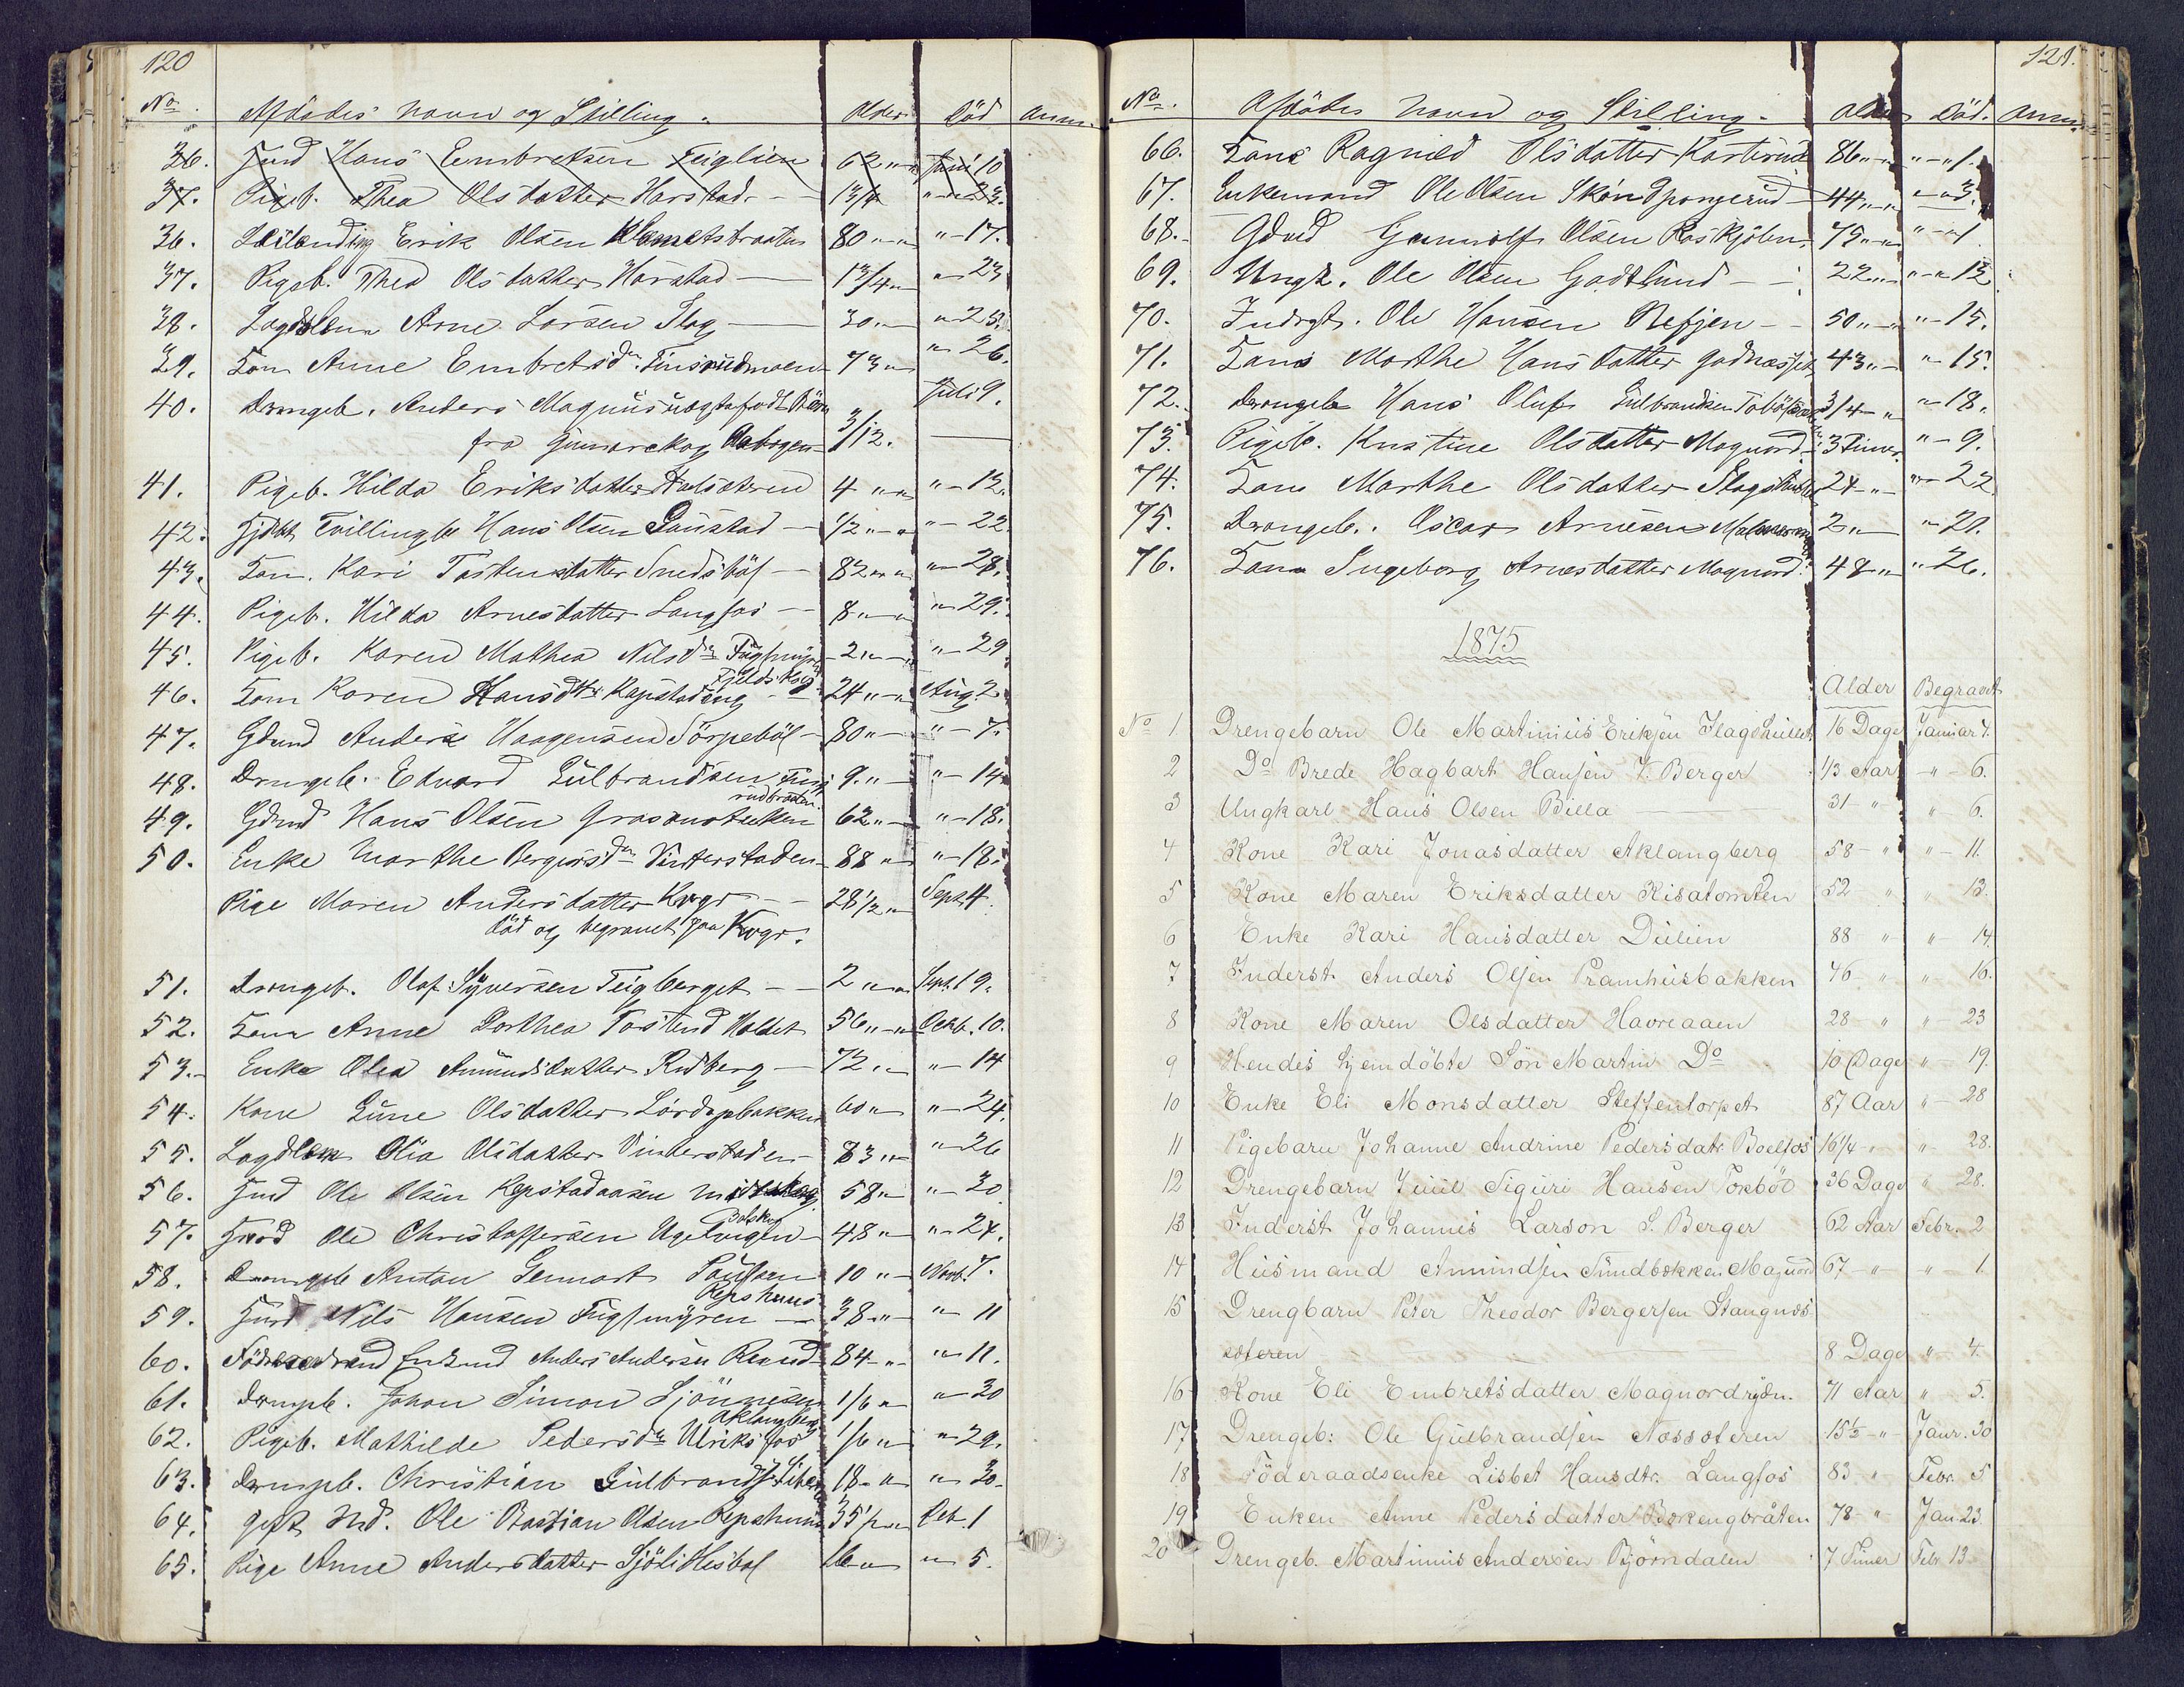 120
No. Afdödes Navn og Stilling. Alder Död Anm.
36. Hmd Hans Embretsen Teiglien 62 " Juni 10
37. Pigeb. Thea Olsdatter Harstad 1 3/4 " - 23.
36. Leilending Erik Olsen Klemetsbraaten 80 " " - 17.
37. Pigeb. Thea Olsdatter Harstad 1 3/4 " - 23
38. Lægdslem Arne Larsen Slag 30 " " 25.
39. Kone Anne Embretsdr. Finsrudmoen 73 " " 26.
40. Drengeb. Anders Magnus Juli 9.
fra Gunnarskog 3/12.
41. Pigeb. Hilda Eriksdatter 4 " " - 12.
42. Hjdbt Tvillingb. Hans Olsen Paustad 1/2 " " - 22.
43. Kone. Kari Torstensdatter Snedsböl 82 " " 28.
44. Pigeb. Hilda Arnesdatter Langfos 8 " " 29.
45. Pigeb. Karen Mathea Nilsdr. Fuglmyren 2 " " - 29.
46. Kone Karen Hansdtr. Kapstadeng 24 " Aug. 2.
47. Gdmd Anders Haagensen Sörpeböl 80 " " - 7.
48. Drengeb. Edvard Gulbrandsen Fins 9 " " - 14
rudbraaten.
49. Gdmd Hans Olsen 62 " " - 18.
50. Enke Marthe Bergersdr. Vinterstaden 88 " " - 18.
Pige Maren Andersdatter Kvgr 28 1/2 " Sept. 4.
död og begravet paa Kvgr.
51. Drengeb. Olaf Syversen Teigberget 2 " Sept. 19.
52. Kone Anne Dorthea Holdet 56 " Octb. 10.
53. Enke Olea Amundsdatter Rudberg 72 " " - 14
54. Kone Gune Olsdatter Lördagsbakken 60 " " - 24.
55. Lægdslem Olia Olsdatter Vinterstaden 83 " " 26
56. Hmd Ole Olsen Kapstadaasen 58 " " 30
57. Hmd Ole Christoffersen 48 " " 24.
58. Drengeb. Anton Lennart 10 " Novb. 7.
Repshuus
59. Hmd Nils Hansen Fuglmyren 38 " " 11
60. Födraadmd Enkmd Anders Andersen 84 " " 11.
61. Drengeb. Johan Simon Sjönnesen 1/6 " " 30
Aklangberg
62. Pigeb. Mathilde Pedersdr. Ulriksfos 1/6 " " 29.
63. Drengeb. Christian Gulbrandsen 18 " " 30.
64. Gift Md. Ole Bastian Olsen Repshuus 35 1/2 " Deb. 1
65. Pige Anne Andersdatter 16 " " 5.
121.
No. Afdödes Navn og Stilling. Alder Död. Anm.
66. Kone Ragnild Olsdatter Karterud 86 " " - " 1.
67. Enkemand Ole Olsen Skönd Spongerud 44 " " 3.
68. Gdmd Gunnolf Olsen Roskjölen 75 " " - 1.
69. Ungk. Ole Olsen Godtlund 22 " " - " 12
70. Indrgt. Ole Hansen Refjen 50 " " - 15.
71. Kone Marthe Hansdatter 43 " " 15.
72. Drengeb. Hans Oluf Gulbrandsen 3/4 " " 18.
73. Pigeb. Kristine Olsdatter Magnord 3 Timer. " - 9.
74. Kone Marthe Olsdatter 24 " " 22
75. Drengeb. Oscar Arnesen 2 " " 21.
76. Kone Ingeborg Arnesdatter Magnord. 48 " " 26.
1875
Alder Begravet
No 1 Drengebarn Ole Martinius Eriksen Slagshullet 16 Dage Januar 4.
2 Do Brede Hagbart Hansen V. Berger 1/3 Aar - " - 6.
3 Ungkarl Hans Olsen Billa 31 " " 6.
4 Kone Kari Jonasdatter Aklangberg 58 - " " - 11.
5 Kone Maren Eriksdatter Risatomten 52 " " 13.
6 Enke Kari Hansdatter Dulien 88 " " - 14.
7 Inderst. Anders Olsen Pramhusbakken 46 " " 16.
8 Kone Maren Olsdatter Havreaaen 28 - " " - 23
9 Hendes hjemdöbte Sön Martin Do 10 Dage " - 19.
10 Enke Eli Monsdatter Steffentorpet 87 Aar " - 28
11 Pigebarn Johanne Andrine Pedersdatr. Boelfos 16 1/4 - " " - 28.
12 Drengebarn Juul Sigurd Hansen Torböl 36 Dage " 28.
13 Inderst Johannes Larson S. Berger 62 Aar Febr. 2
14 Husmand Amundsen Sundbækken Magnord 67 - " " - 1.
15 Drengbarn Peter Theodor Bergersen Stangnæs
sæteren 8 Dage " - 4.
16 Kone Eli Embretsdatter Magnordrydn. 71 Aar " 5.
17 Drengeb: Ole Gulbrandsen Næssæteren 15 1/2 - " Janr. 30
18 Föderaadsenke Lisbet Hansdtr. Langfos 83 " Febr. 5
19 Enken Anne Pedersdatter Børkengbråten 78 - " Jan. 23
20 Drengeb. Martinius Andersen Björndalen 7 Timer Febr 13